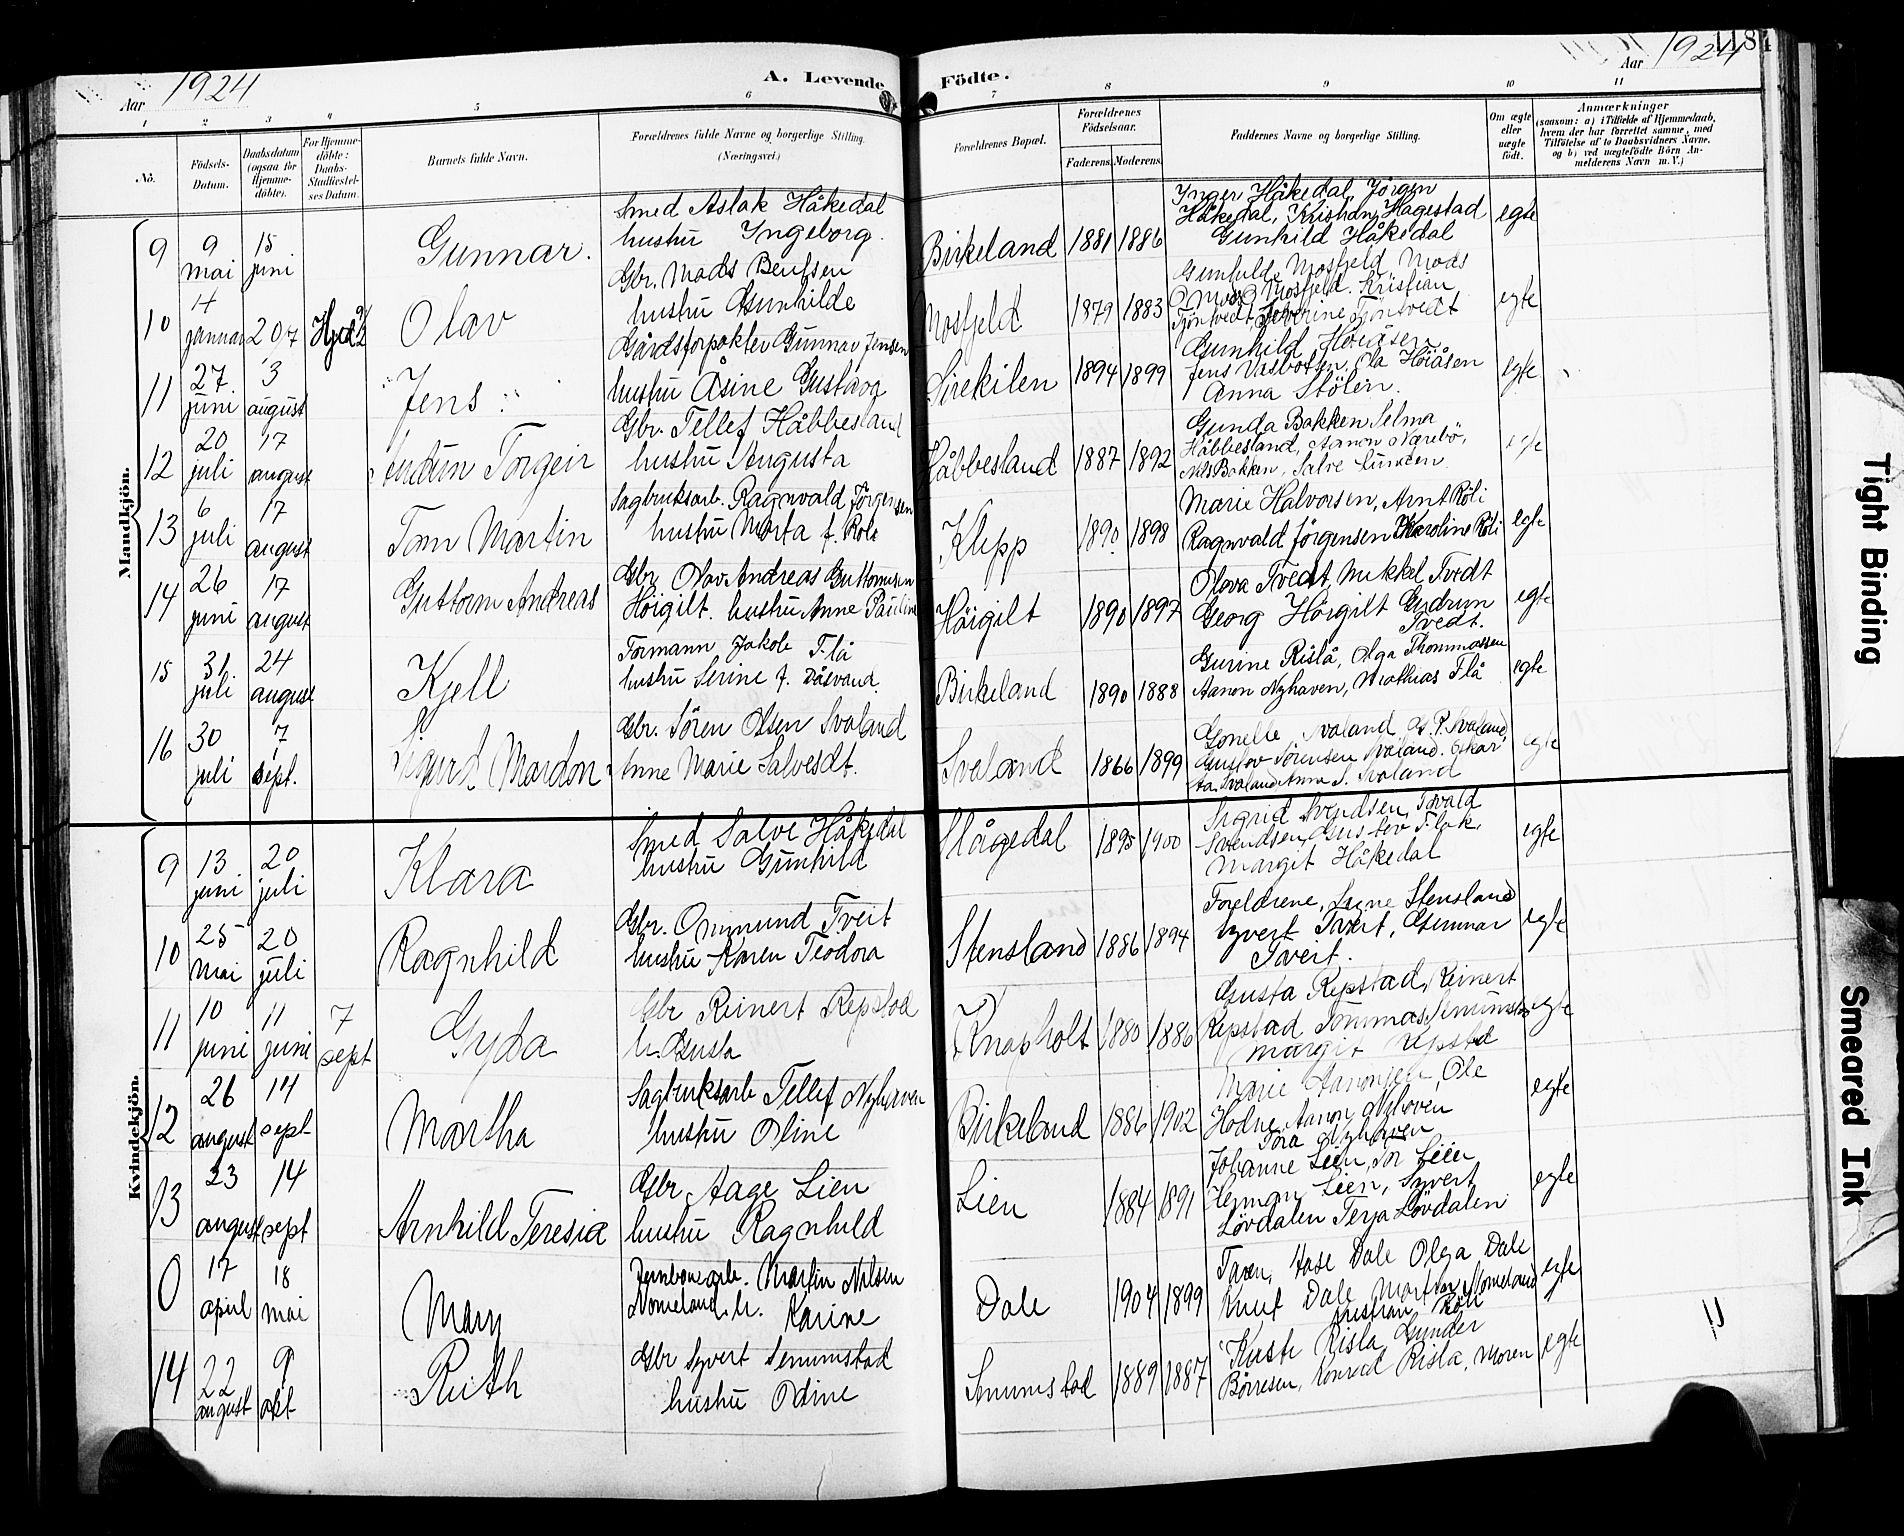 Aar 1924
A. Levende
Födte.
Aar 1924
184
1 2 3 4 5 6 7 8 9 10 11
No.
Födsels-Datum.
Daabsdatum (ogsaa for Hjemme-döbte).
For Hjemme-döbte: Daabs-Stadfæstel-ses Datum.
Barnets fulde Navn.
Forældrenes fulde Navne og borgerlige Stilling. (Næringsvei.)
Forældrenes Bopæl.
Forældrenes Födselsaar.
Faderens. Moderens.
Faddernes Navne og borgerlige Stilling.
Om ægte eller uægte födt.
Anmærkninger
(saasom: a) i Tilfælde af Hjemmedaab, hvem der har forrettet samme, med Tilföielse af to Daabsvidners Navne, og b) ved uægtefödte Börn An-melderens Navn m. V.)
Mandkjön.
9
9 mai
15 juni
Gunnar.
Smed Aslak Håkedal
hustru Ingeborg.
Birkeland
1881 1886
Inger Håkedal, Jörgen
Håkedal, Kristian Hagestad
Gunhild Håkedal
egte
10
januar
20/7
Olav
Gbr. Mads Bentsen
hustru Gunhilde
Mosfjeld
1879 1883
Gunhild Mosfjeld Mads
Mosfjeld. Kristian
Tjöntvedt, Severine Tjöntvedt
egte
11
27. juni
3 august
Jens
Gårdsforpakter Gunnar Jensen
hustru Åsine Gustava
Sirekilen
1894 1899
Gunhild Höiåsen
Jens Vasbotsen, Ola Höiåsen
Anna Stölen.
egte
12
20 juli
17 august
Audun Torgeir
Gbr. Tellef Håbbesland
hustru Augusta
Håbbesland
1887 1892
Gunda Bakken Selma
Håbbesland, Aanon Nærebö,
Nils Bakken, Salve
13
6 juli
17 august
Tom Martin
Sagbruksarb. Ragnvald Jörgensen
hustru Marta f. Röli
Klepp
1890 1898
Marie Halvorsen, Arnt Röli
Ragnvald Jörgensen Karoline Röli
egte
14
26 juni
17 august
Guttorm Andreas
Gbr. Olav Andreas Guttormsen
Höigilt. hustru Anne Pauline
Höigilt
1890 1897
Olava Tvedt, Mikkel Tvedt
Georg Höigilt Gudrun
Tvedt.
egte
15
31 juli
24 august
Kjell
Formann Jakob Flå
hustru Serine f. Dåsvand.
Birkeland
1890 1888
Gurine Rislå, Olga Thommassen
Aanon Nyhaven, Mathias Flå
egte
16
30 juli
7 sept.
Sigurd Mardon
Gbr. Sören Olsen Svaland
Anne Marie Salvesdt.
Svaland
1866 1899
Gonelle Svaland O. P. Svaland,
Gustav Sörensen Svaland. Oskar
Aa. Svaland Anna S. Svaland
egte
Kvindekjön.
9
13 juni
20 juli
Klara
Smed Salve Håkedal
hustru Gunhild
Slågedal
1895 1900
Sigrid Svendsen, Torvald
Svendsen, Gustav Flak.
Margit Håkedal
egte
10
25 mai
20 juli
Ragnhild
Gbr. Ommund Tveit
hustru Karen Teodora
Stensland
1886 1894
Foreldrene, Signe Stensland
Syvert Tveit, Gunnar
Tveit.
egte
11
10 juni
11 juni
7 sept
Gyda
Gbr Reinert Repstad
h. Gusta
Knapholt
1880 1886
Gusta Repstad, Reinert
Repstad Tommas Senumstad
Margit Repstad
egte
12
26 august
14 sept
Martha
Sagbruksarb Tellef Nyhaven
hustru Oline
Birkeland
1886 1902
Marie Aanonsen, Ole
Hodne Aanon Nyhaven
Tora Nyhaven
egte
13
23 august
14 sept
Arnhild Teresia
Gbr Aage Lien
hustru Ragnhild
Lien
1884 1891
Johanne Lien, Tor Lien
Herman Lien, Syvert
Lövdalen Terja Lövdalen
egte
0
17 april
18 mai
Mary
Jernbanearb. Martin Nilsen
Nomeland. h. Karine
Dale
1904 1899
Taren, Aase Dale Olga Dale
Knut Dale Martin Nomeland
Kristian Röli
egte
14
22 august
9 okt
Ruth
Gbr Syvert Senumstad
hustru Odine
Senumstad
1889 1887
Kuste Risla Gunder
Börresen, Konrad Risla, Moren
egte
Tight Binding
Smeared Ink